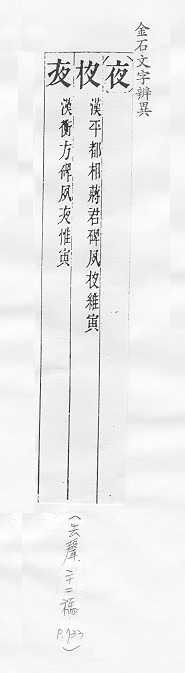 金石文字辨異
夜
𡖍 漢平都相蔣君碑夙𡖍維寅
亱 漢衡方碑夙夜惟寅
(去聲 二十二禡
P.733)